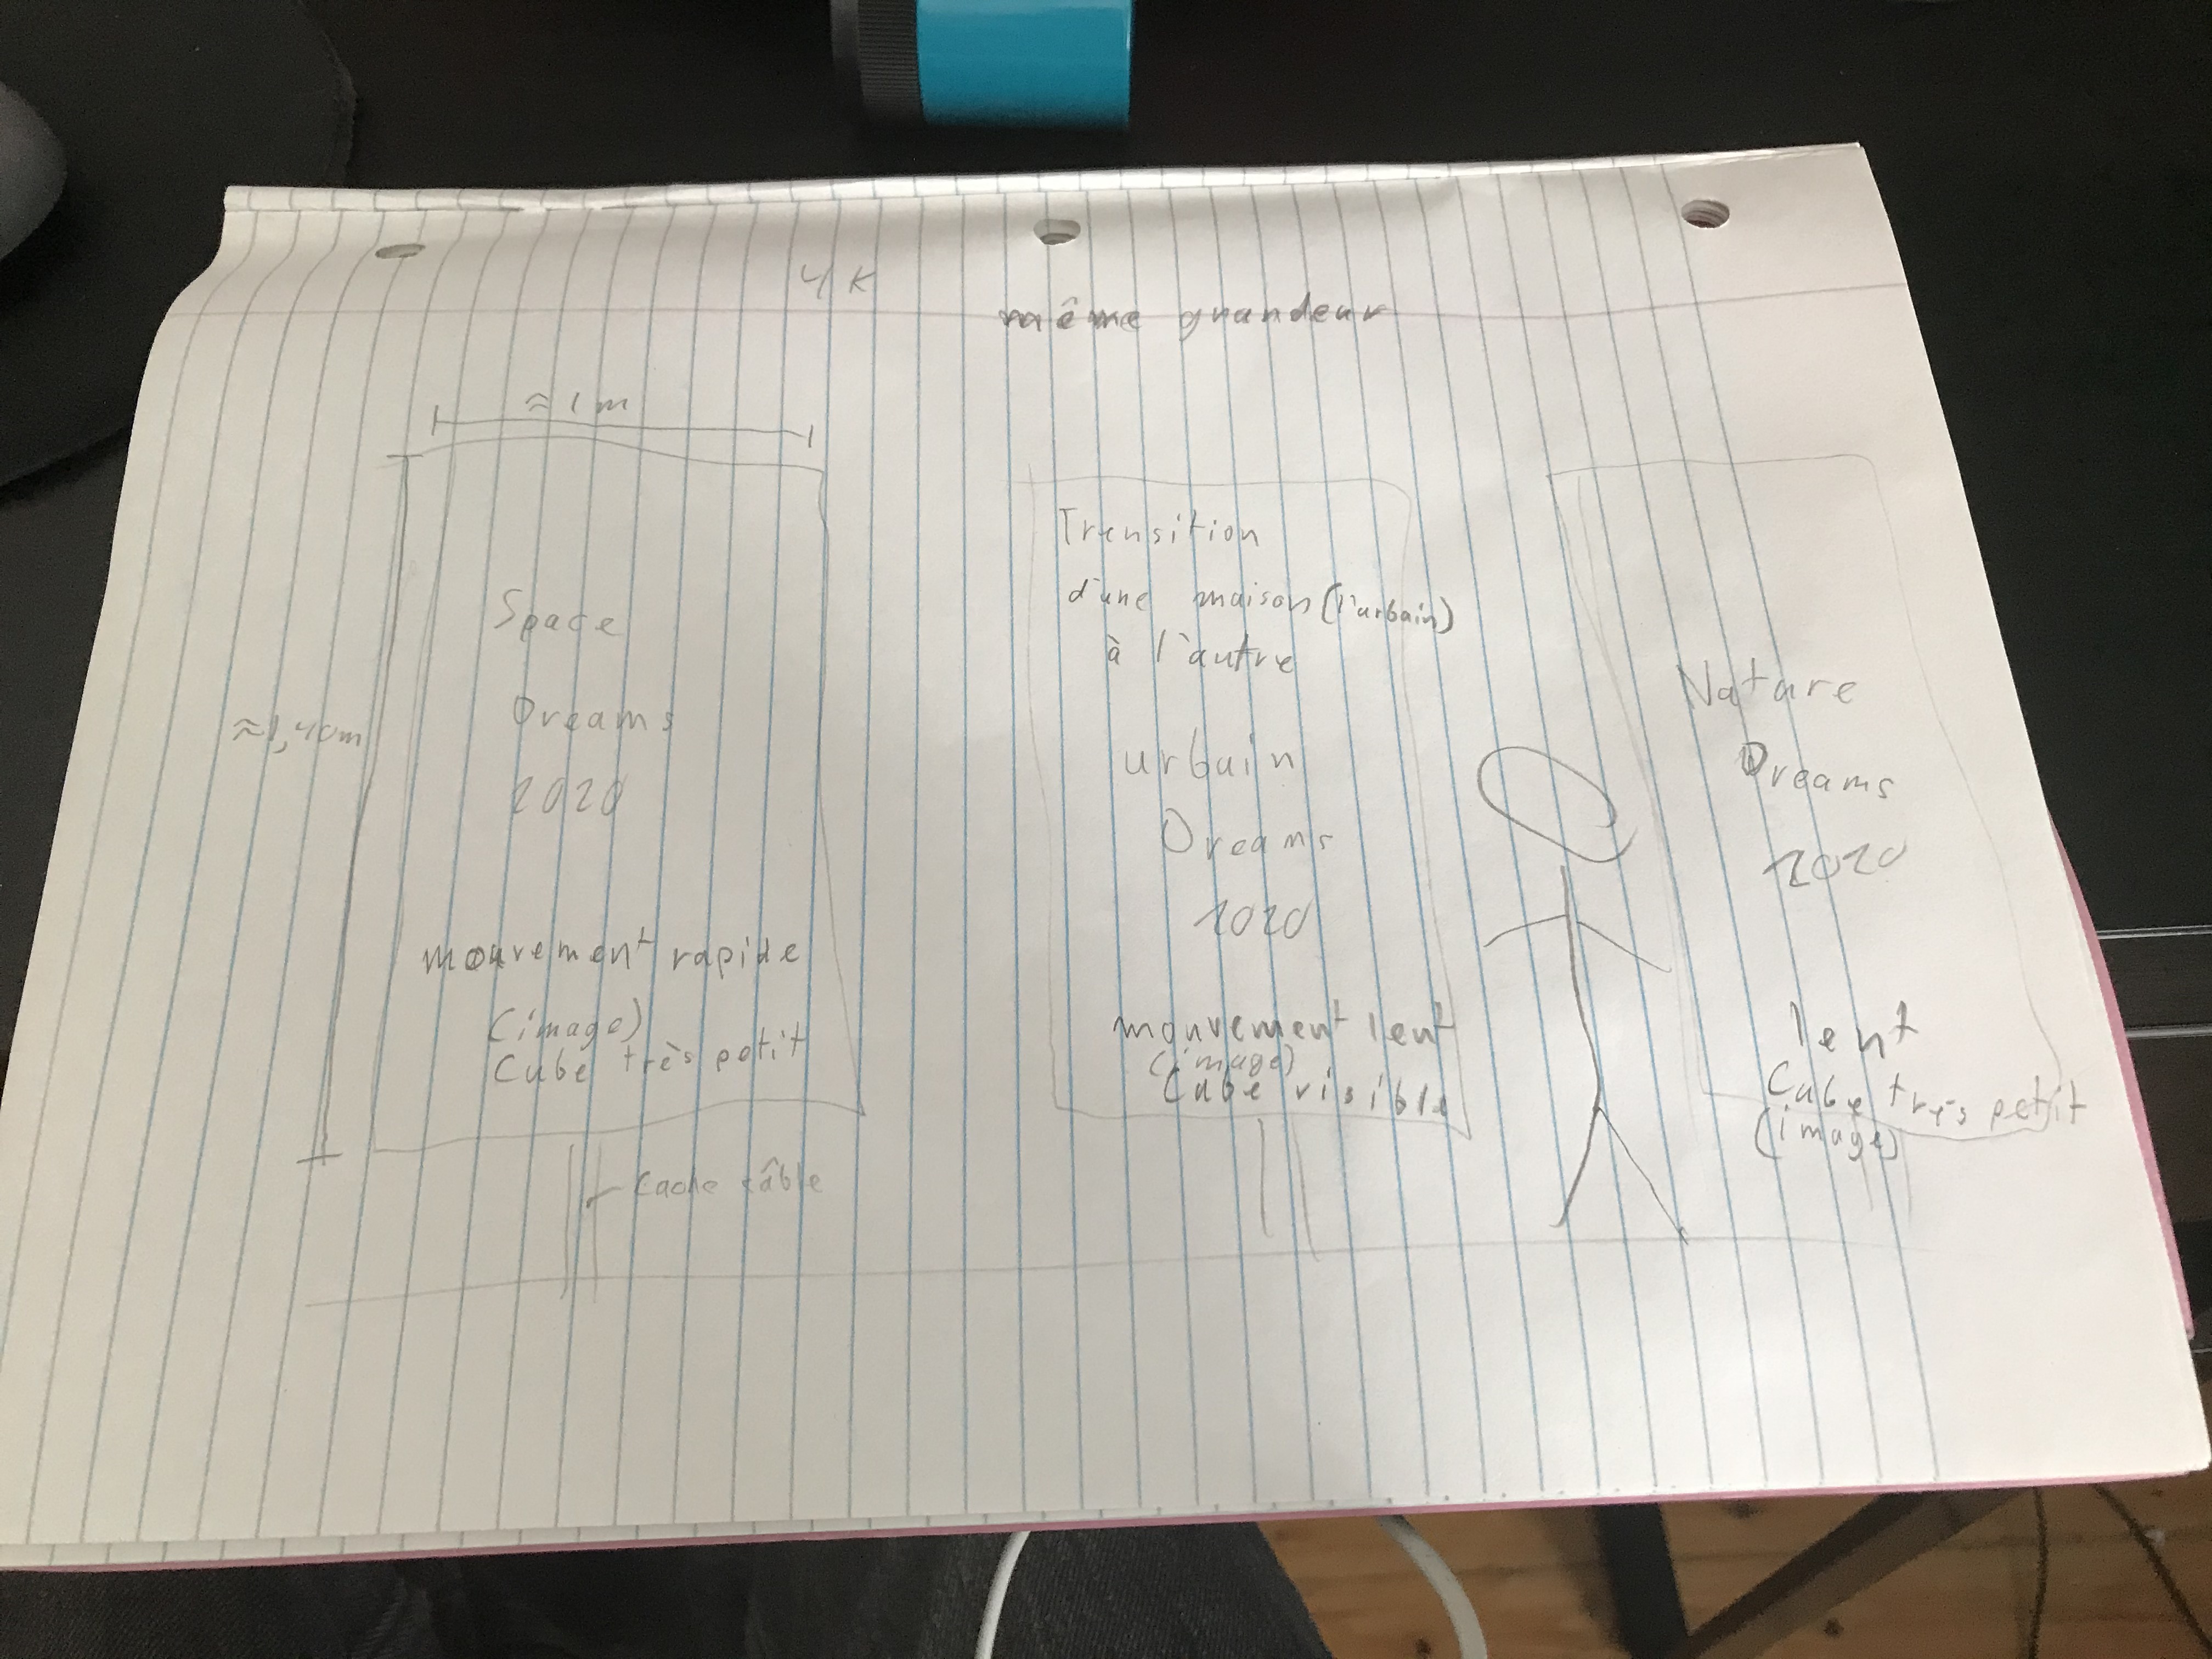 4K
même grandeur
≈ 1m
≈ 1,40m
Space
Dreams
2020
mouvement rapide
(image)
Cube très petit
cache câble
Transition
d'une maison (l'urbain)
à l'autre
Urbain
Dreams
2020
mouvement lent
(image)
Cube visible
Nature
Dreams
2020
lent
Cube très petit
(image)